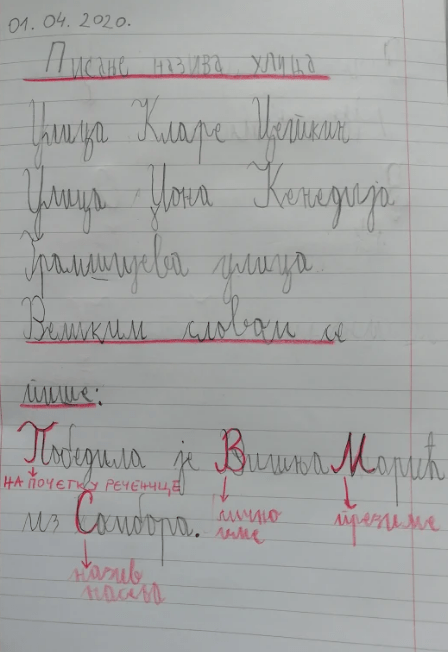 01. 04. 2020.
Писане назива улица
Улица Кларе Цеткин
Улица Џона Кенедија
Грамшијева улица
Великим словом се
пише:
Победила је Вишња Марић
НА ПОЧЕТКУ РЕЧЕНИЦЕ
из Сомбора.
лично име
презиме
назив насеља